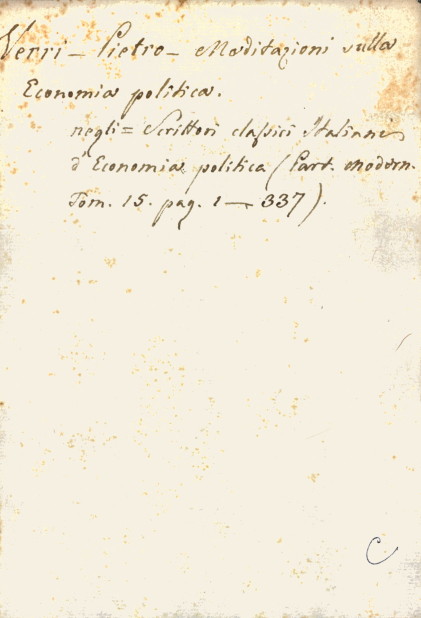 Verri - Pietro - Meditazioni sulla
Economia politica.
negli = Scrittori classici Italiani
d'Economia politica (Part. modern.
Tom. 15. pag. 1 — 337).
C